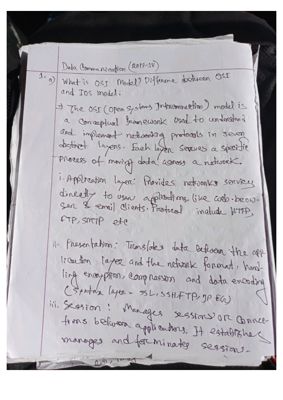 Data Communication (2017-18)
1. a) What is OSI Model? Difference between OSI
and IOS model:
→ The OSI (Open Systems Interconnection) model is
a conceptual framework used to understand
and implement networking protocols in seven
abstract layers. Each layer serves a specific
process of moving data across a network.
i. Application layer: Provides network services
directly to user applications like web-brow-
ser & email clients. Protocol include HTTP,
FTP, SMTP etc
ii. Presentation: Translates data between the app-
lication layer and the network format, hand-
ling encryption, compression and data encoding
(Syntax layer - SSL, SSH, FTP, JPEG)
iii. Session: Manages sessions or connec-
tions between applications. It establishes
manages and terminates session-